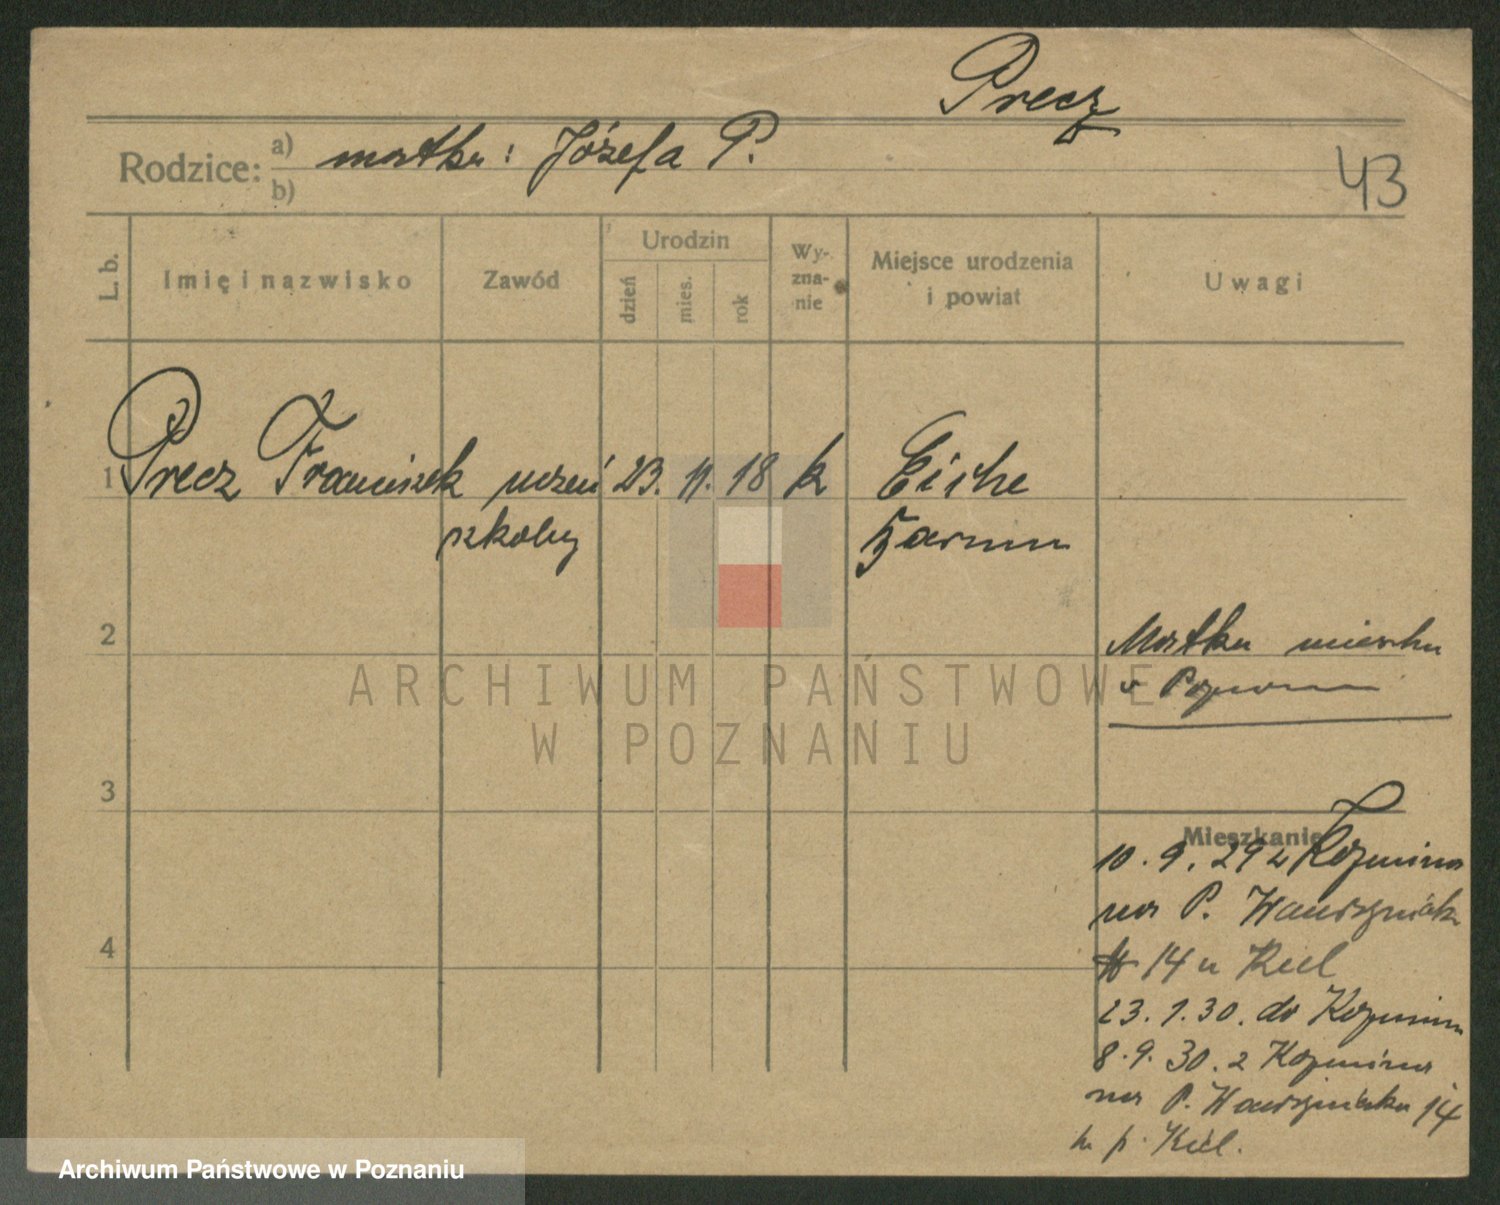 Precz
Rodzice: a) matka: Józefa P.
b)
43
L. b.
Imię i nazwisko
Zawód
Urodzin
dzień
mies.
rok
Wy-
zna-
nie
Miejsce urodzenia
i powiat
Uwagi
1 Precz Franciszek uczeń 23. 11. 18 k Eiche
szkoły
2
Matka mieszka
w Poznaniu
ARCHIWUM PAŃSTWOWE
W POZNANIU
3
Mieszkanie
10.9.29 z Kozmina
na P. Wawrzyniaka
14 u Kiel
4
23.1.30. do Kozmina
8.9.30. z Kozmina
na P. Wawrzyniaka 14
p. Kiel.
Archiwum Państwowe w Poznaniu